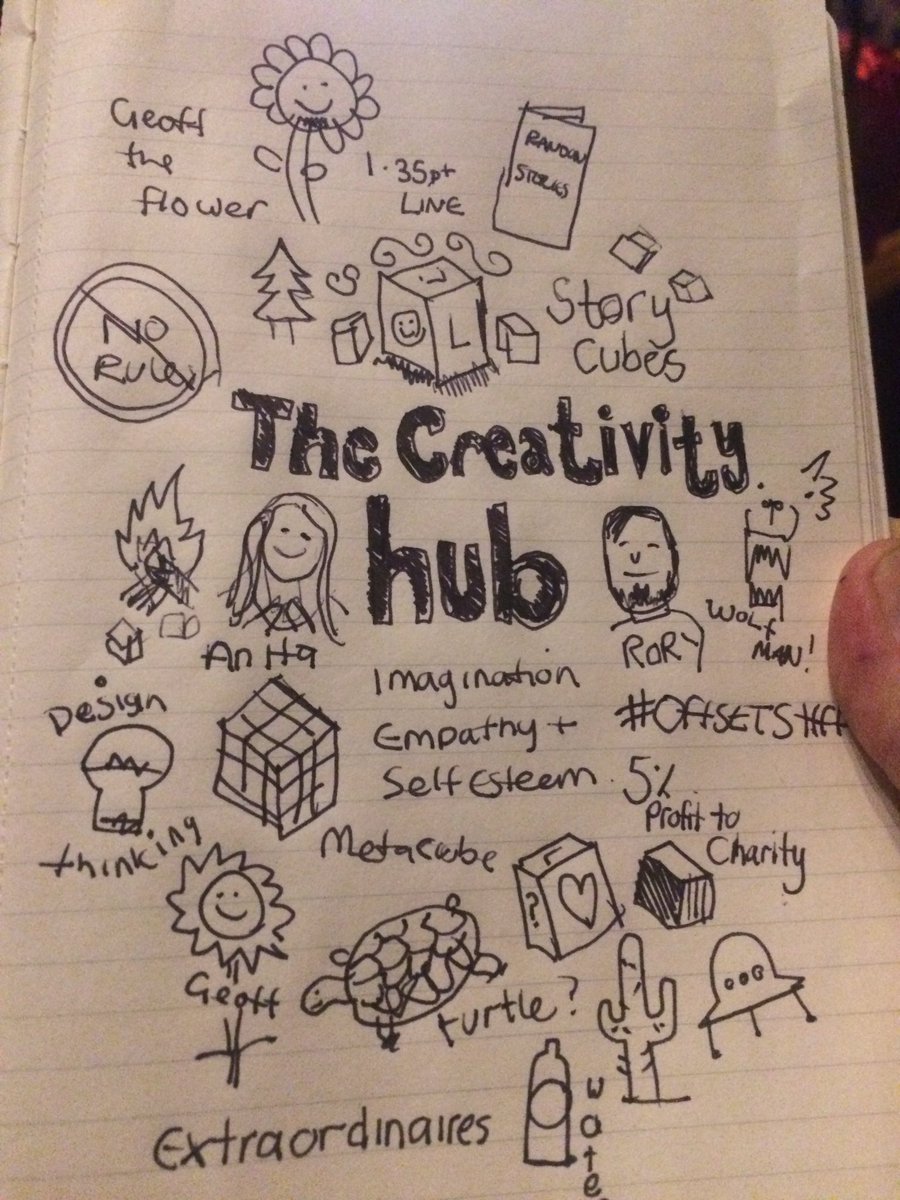 Geoff
the
flower
1.35pt
LINE
RANDOM
STORIES
NO
RULES
L
Story
Cubes
The Creativity
hub
Anita
RORY
WOLF
MAN!
Imagination
Empathy +
Self Esteem
5%
Profit to
Charity
Design
thinking
Metacube
?
Geoff
turtle?
Extraordinaires
wate